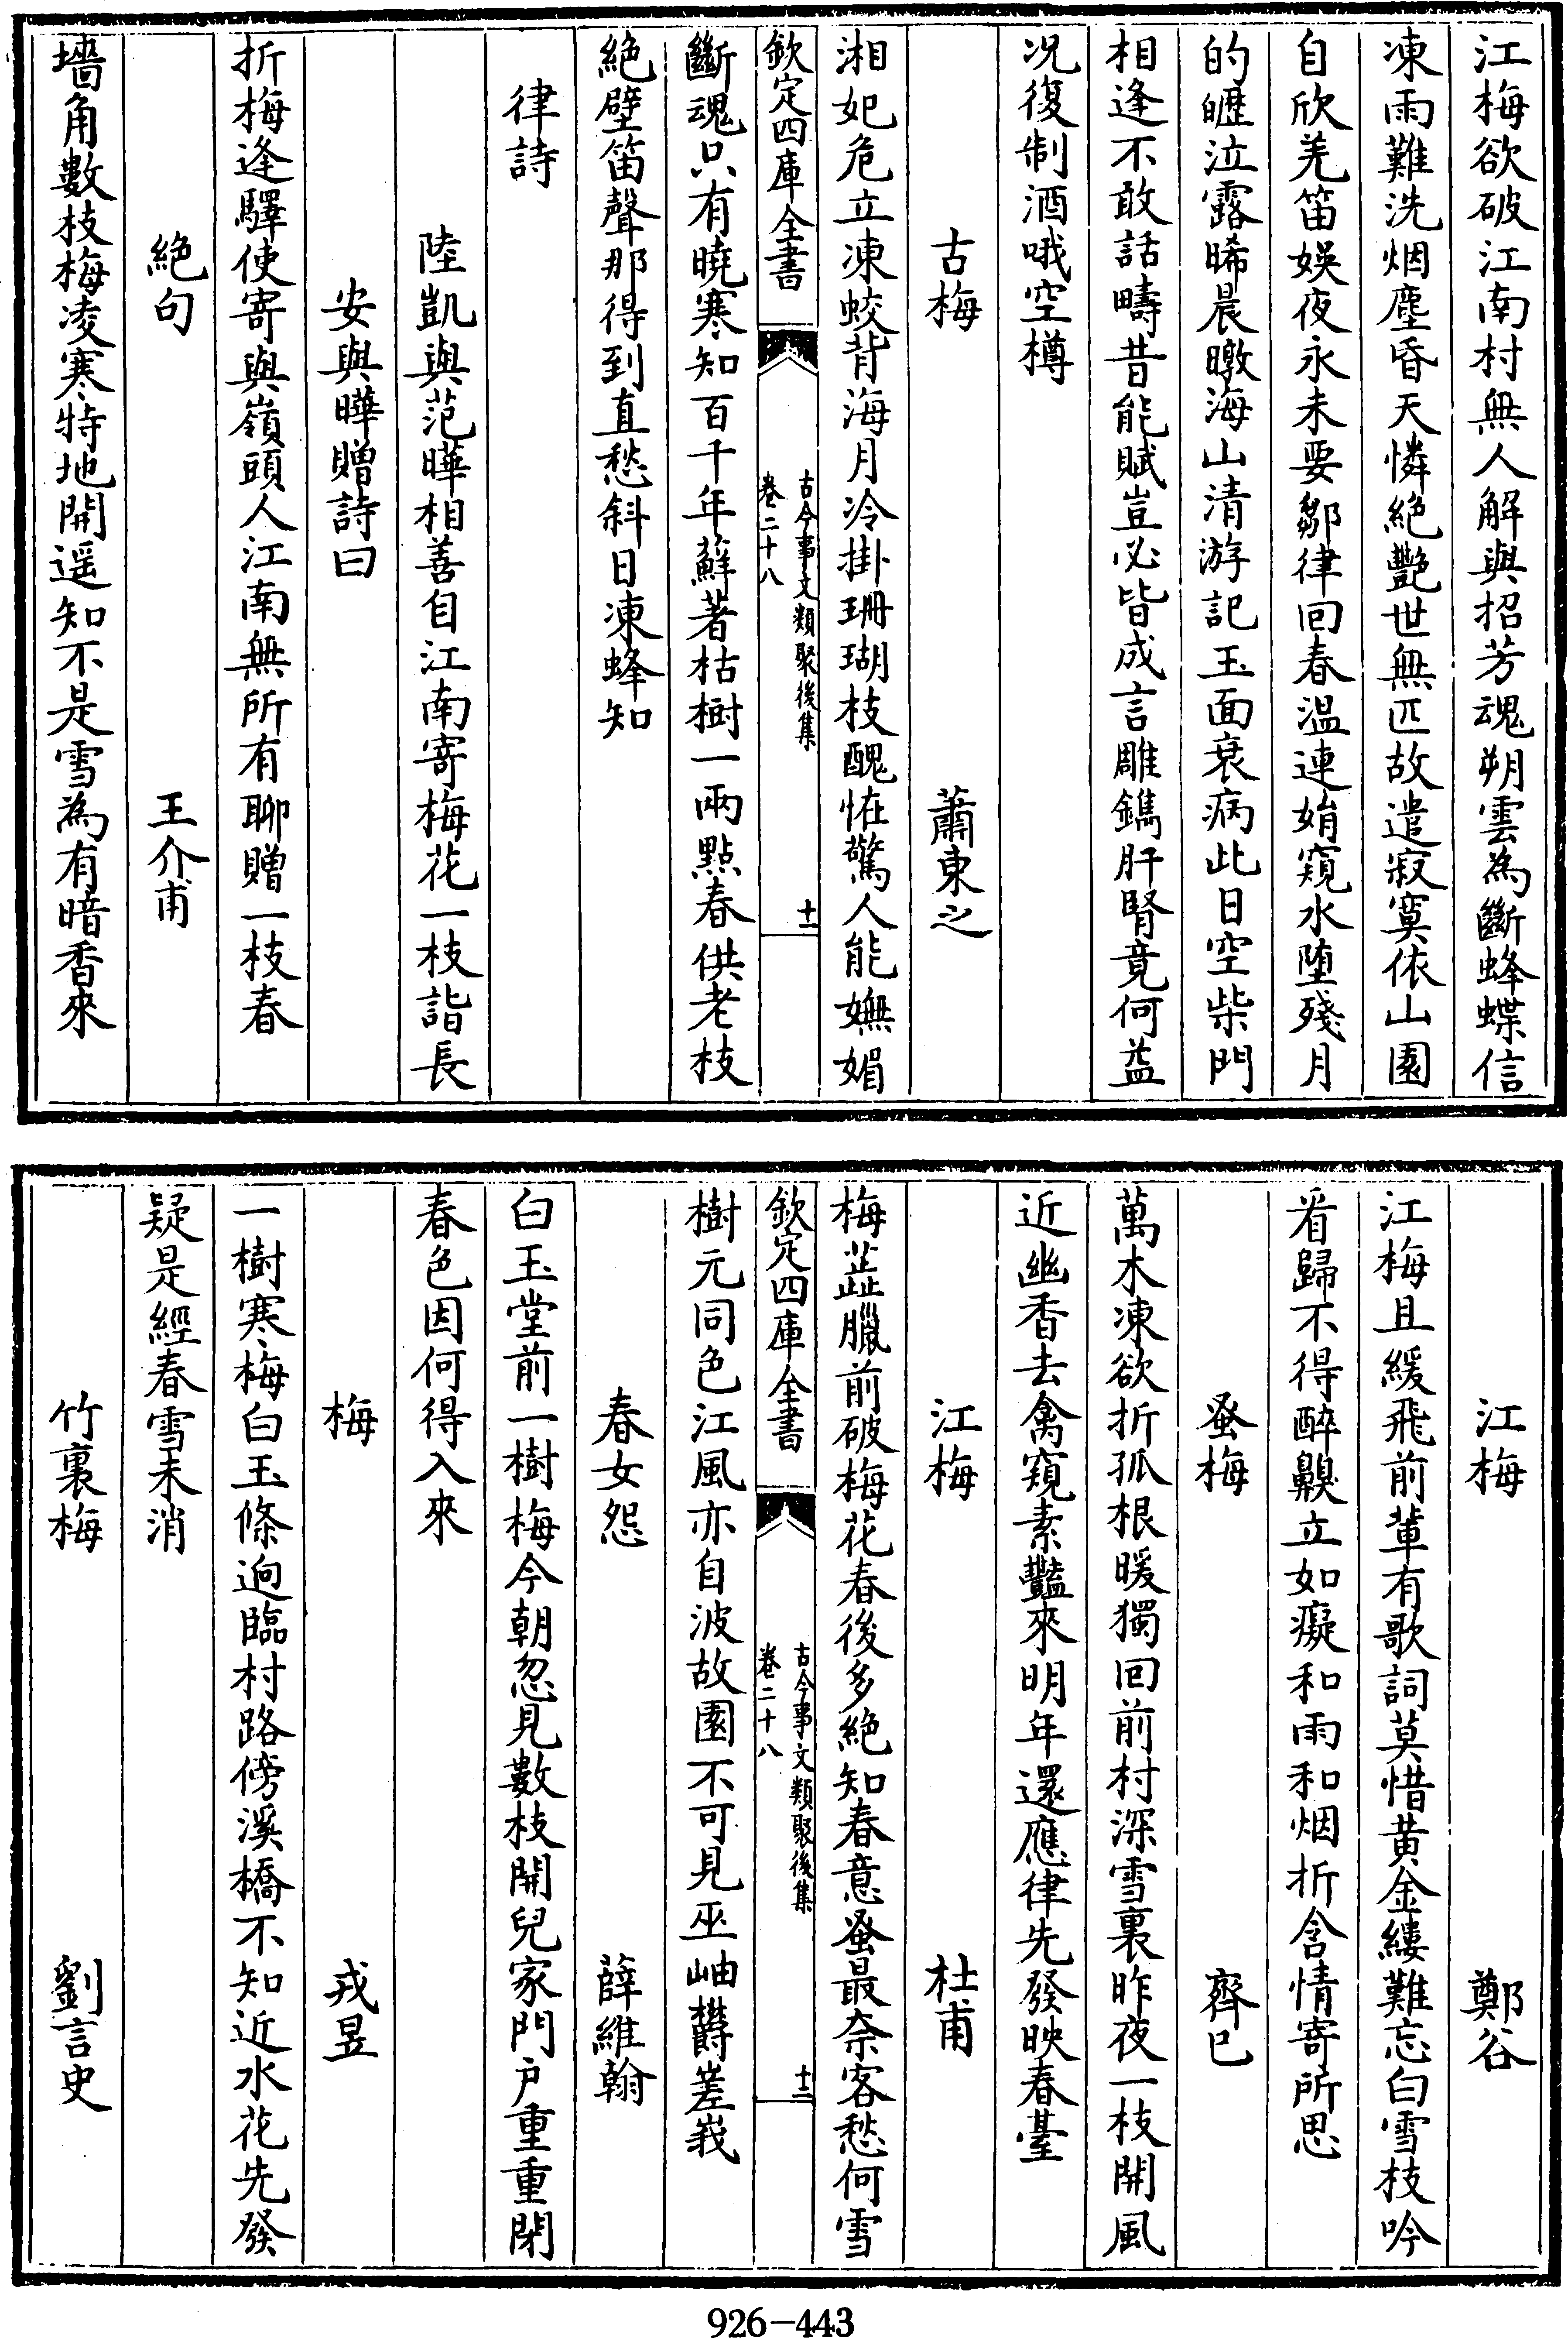 江梅欲破江南村無人解與招芳魂朔雲為斷蜂蝶信
凍雨難洗烟塵昏天憐絶艷世無匹故遣寂寞依山園
自欣羌笛娛夜永未要鄒律回春温連娟窺水堕殘月
的皪泣露晞晨暾海山清游記玉面衰病此日空柴門
相逢不敢話疇昔能賦豈必皆成言雕鐫肝腎竟何益
况復制酒哦空樽
古梅 蕭東之
湘妃危立凍蛟背海月冷掛珊瑚枝醜怪驚人能嫵媚
欽定四庫全書 古今事文類聚後集 卷二十八 十一
斷魂只有曉寒知百千年蘚著枯樹一兩點春供老枝
絶壁笛聲那得到直愁斜日凍蜂知
律詩
陸凱與范曄相善自江南寄梅花一枝詣長
安與曄贈詩曰
折梅逢驛使寄與嶺頭人江南無所有聊贈一枝春
絶句 王介甫
墻角數枝梅凌寒特地開遥知不是雪為有暗香來
江梅 鄭谷
江梅且緩飛前輩有歌詞莫惜黄金縷難忘白雪枝吟
看歸不得醉齅立如癡和雨和烟折含情寄所思
蚤梅 齊已
萬木凍欲折孤根暖獨回前村深雪裏昨夜一枝開風
近幽香去禽窺素豔來明年還應律先發映春臺
江梅 杜甫
梅蘂臘前破梅花春後多絶知春意蚤最奈客愁何雪
欽定四庫全書 古今事文類聚後集 卷二十八 十二
樹元同色江風亦自波故園不可見巫岫欝嵳峩
春女怨 薛維翰
白玉堂前一樹梅今朝忽見數枝開兒家門户重重閉
春色因何得入來
梅 戎昱
一樹寒梅白玉條逈臨村路傍溪橋不知近水花先發
疑是經春雪未消
竹裏梅 劉言史
926-443